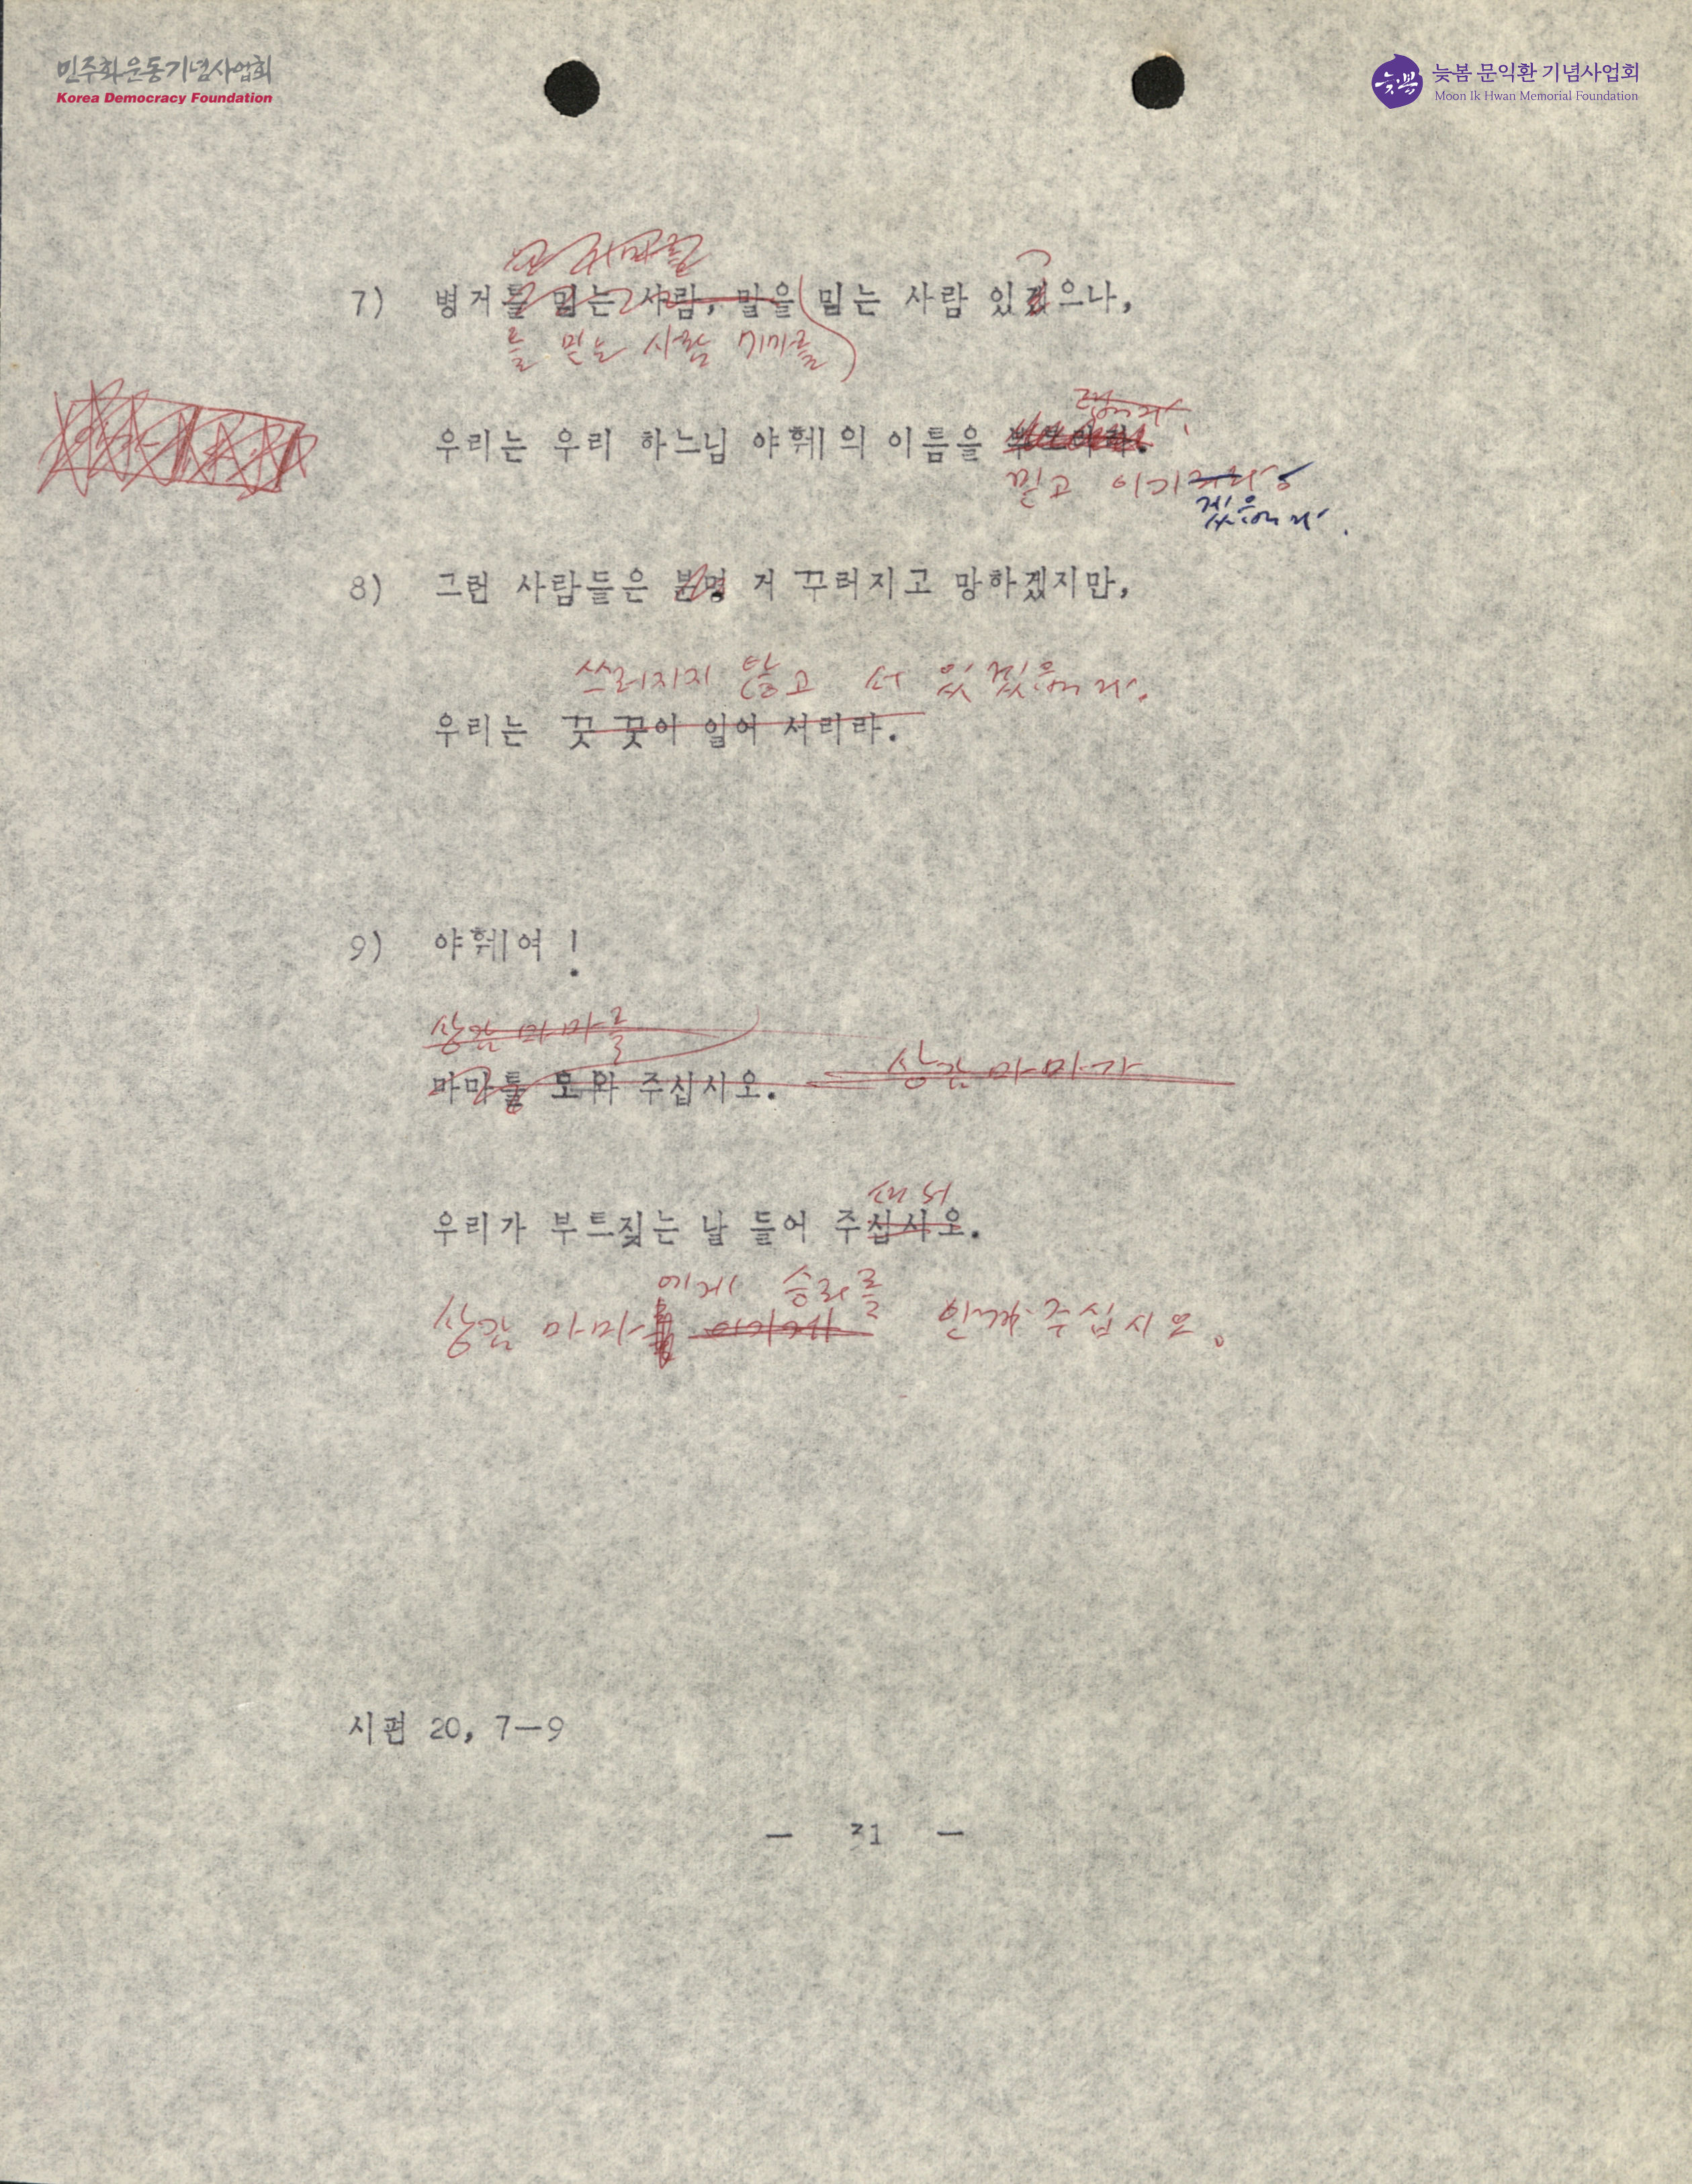 민주화운동기념사업회
Korea Democracy Foundation
늦봄
늦봄 문익환 기념사업회
Moon Ik Hwan Memorial Foundation
7) 병거를 믿는 사람, 말을 믿는 사람 있겠으나,
를 믿는 사람 기마를
우리는 우리 하느님 야훼의 이름을
믿고 이기리라
겠읍니다.
8) 그런 사람들은 분명 거꾸러지고 망하겠지만,
쓰러지지 않고 서 있겠읍니다.
우리는 꿋꿋이 일어 서리라.
9) 야훼여!
상감 마마를
상감 마마가
마마를 도와 주십시오.
셔서
우리가 부르짖는 날 들어 주십시오.
에게 승리를
상감 마마를 이기게 안겨 주십시오.
시편 20, 7—9
— 31 —